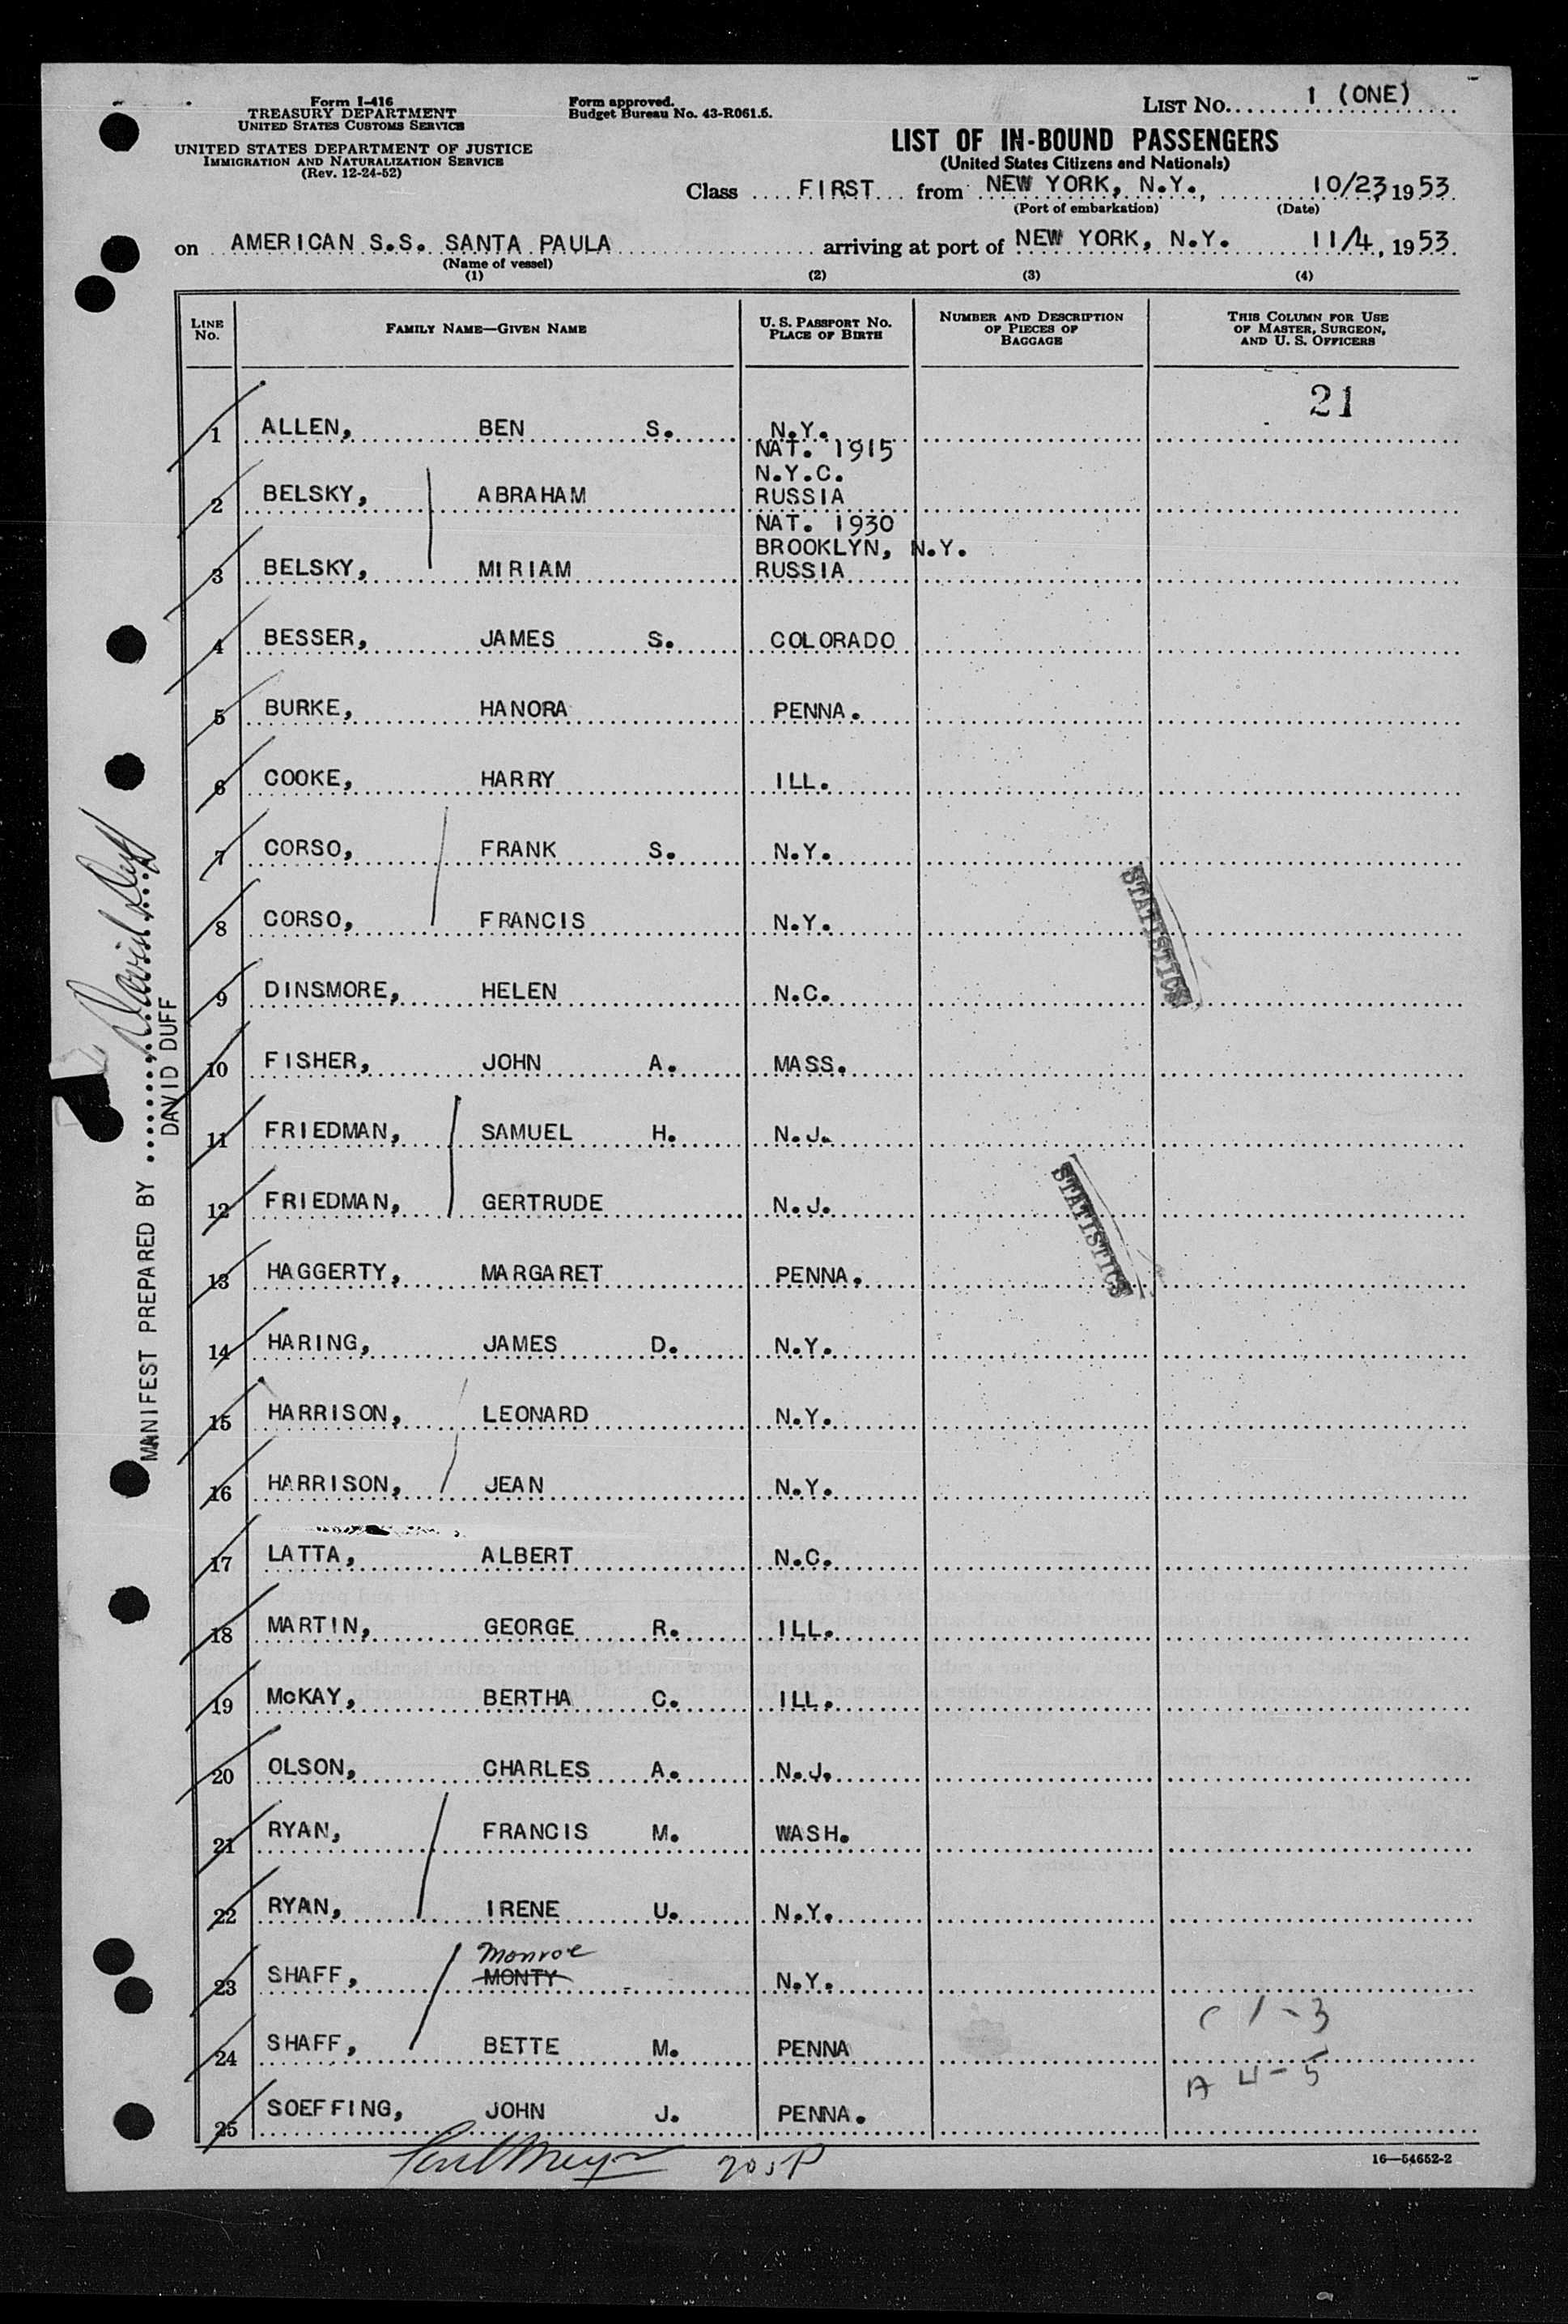 Form I-416
TREASURY DEPARTMENT
UNITED STATES CUSTOMS SERVICE
UNITED STATES DEPARTMENT OF JUSTICE
IMMIGRATION AND NATURALIZATION SERVICE
(Rev. 12-24-52)
Form approved.
Budget Bureau No. 43-R061.5.
LIST NO. 1 (ONE)
LIST OF IN-BOUND PASSENGERS
(United States Citizens and Nationals)
Class FIRST from NEW YORK, N.Y., 10/23, 1953
(Port of embarkation) (Date)
on AMERICAN S.S. SANTA PAULA arriving at port of NEW YORK, N.Y. 11/4, 1953
(Name of vessel)
(1) (2) (3) (4)
LINE NO. FAMILY NAME—GIVEN NAME U. S. PASSPORT NO. PLACE OF BIRTH NUMBER AND DESCRIPTION OF PIECES OF BAGGAGE THIS COLUMN FOR USE OF MASTER, SURGEON, AND U. S. OFFICERS
21
1 ALLEN, BEN S. N.Y.
NAT. 1915
N.Y.C.
2 BELSKY, ABRAHAM RUSSIA
NAT. 1930
BROOKLYN, N.Y.
3 BELSKY, MIRIAM RUSSIA
4 BESSER, JAMES S. COLORADO
5 BURKE, HANORA PENNA.
6 COOKE, HARRY ILL.
7 CORSO, FRANK S. N.Y.
8 CORSO, FRANCIS N.Y.
STATISTICS
9 DINSMORE, HELEN N.C.
10 FISHER, JOHN A. MASS.
11 FRIEDMAN, SAMUEL H. N.J.
12 FRIEDMAN, GERTRUDE N.J.
STATISTICS
13 HAGGERTY, MARGARET PENNA.
14 HARING, JAMES D. N.Y.
15 HARRISON, LEONARD N.Y.
16 HARRISON, JEAN N.Y.
17 LATTA, ALBERT N.C.
18 MARTIN, GEORGE R. ILL.
19 McKAY, BERTHA C. ILL.
20 OLSON, CHARLES A. N.J.
21 RYAN, FRANCIS M. WASH.
22 RYAN, IRENE U. N.Y.
Monroe
23 SHAFF, MONTY N.Y.
C 1-3
24 SHAFF, BETTE M. PENNA
A 4-5
25 SOEFFING, JOHN J. PENNA.
16—54652-2
MANIFEST PREPARED BY David Duff
DAVID DUFF